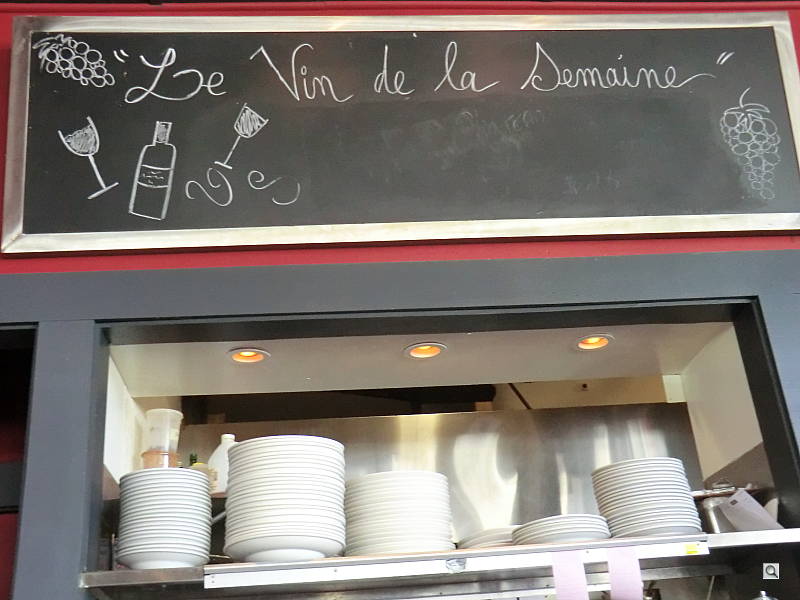 "Le Vin de la Semaine"